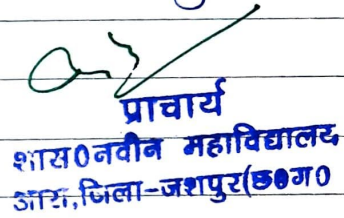 प्राचार्य
शास0नवीन महाविद्यालय
आरा,जिला-जशपुर(छ0ग0